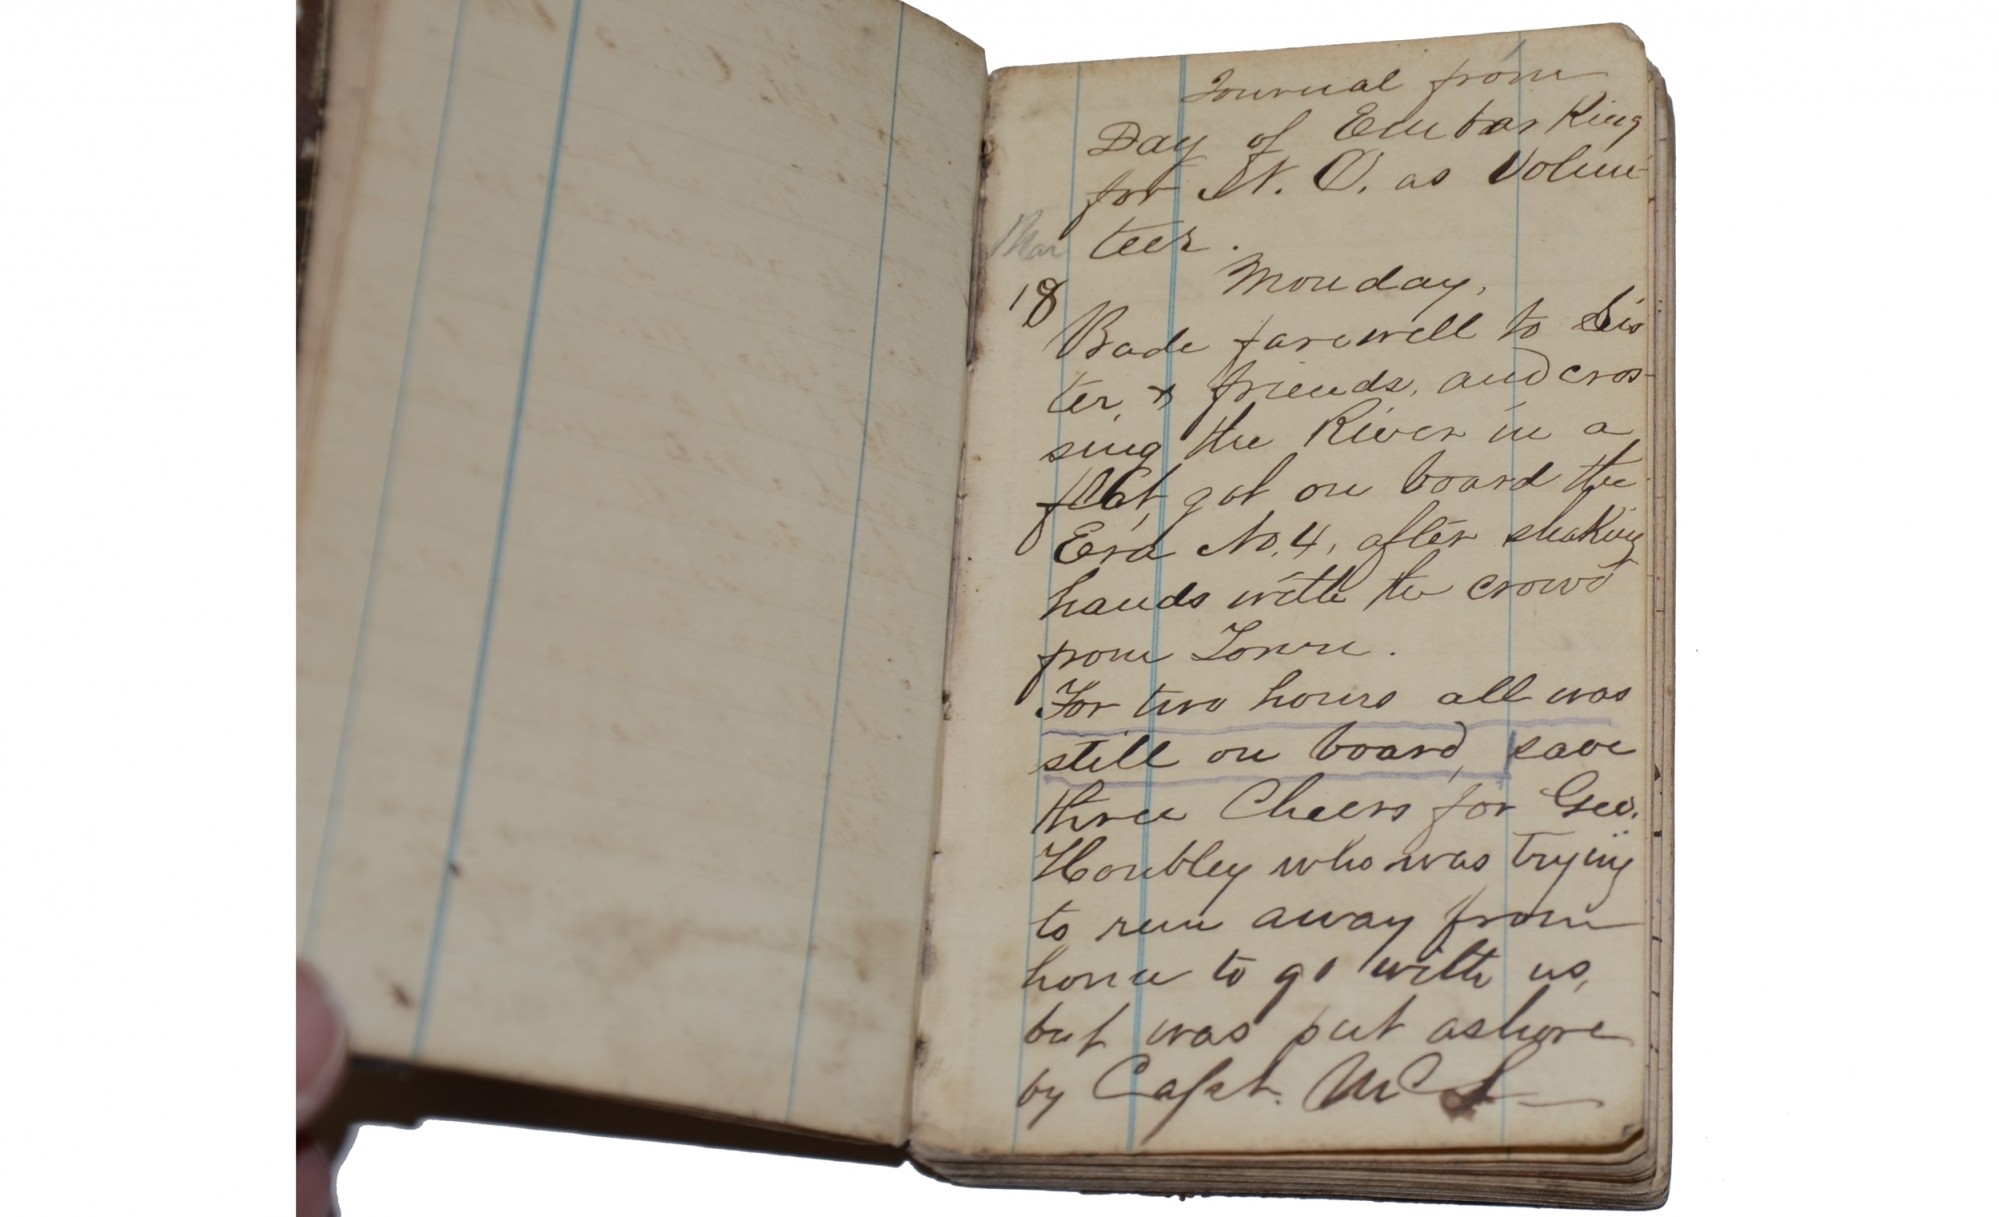 Journal from
Day of Embarking
for N. O. as Volun-
teer.
Mar
Monday,
18
Bade farewell to Sis
ter, & friends, and cros-
sing the River in a
flat, got on board the
Era No. 4, after shaking
hands with the crowd
from Town.
For two hours all was
still on board, save
three Cheers for Geo.
Houbley who was trying
to run away from
home to go with us,
but was put ashore
by Capt. Mc L—